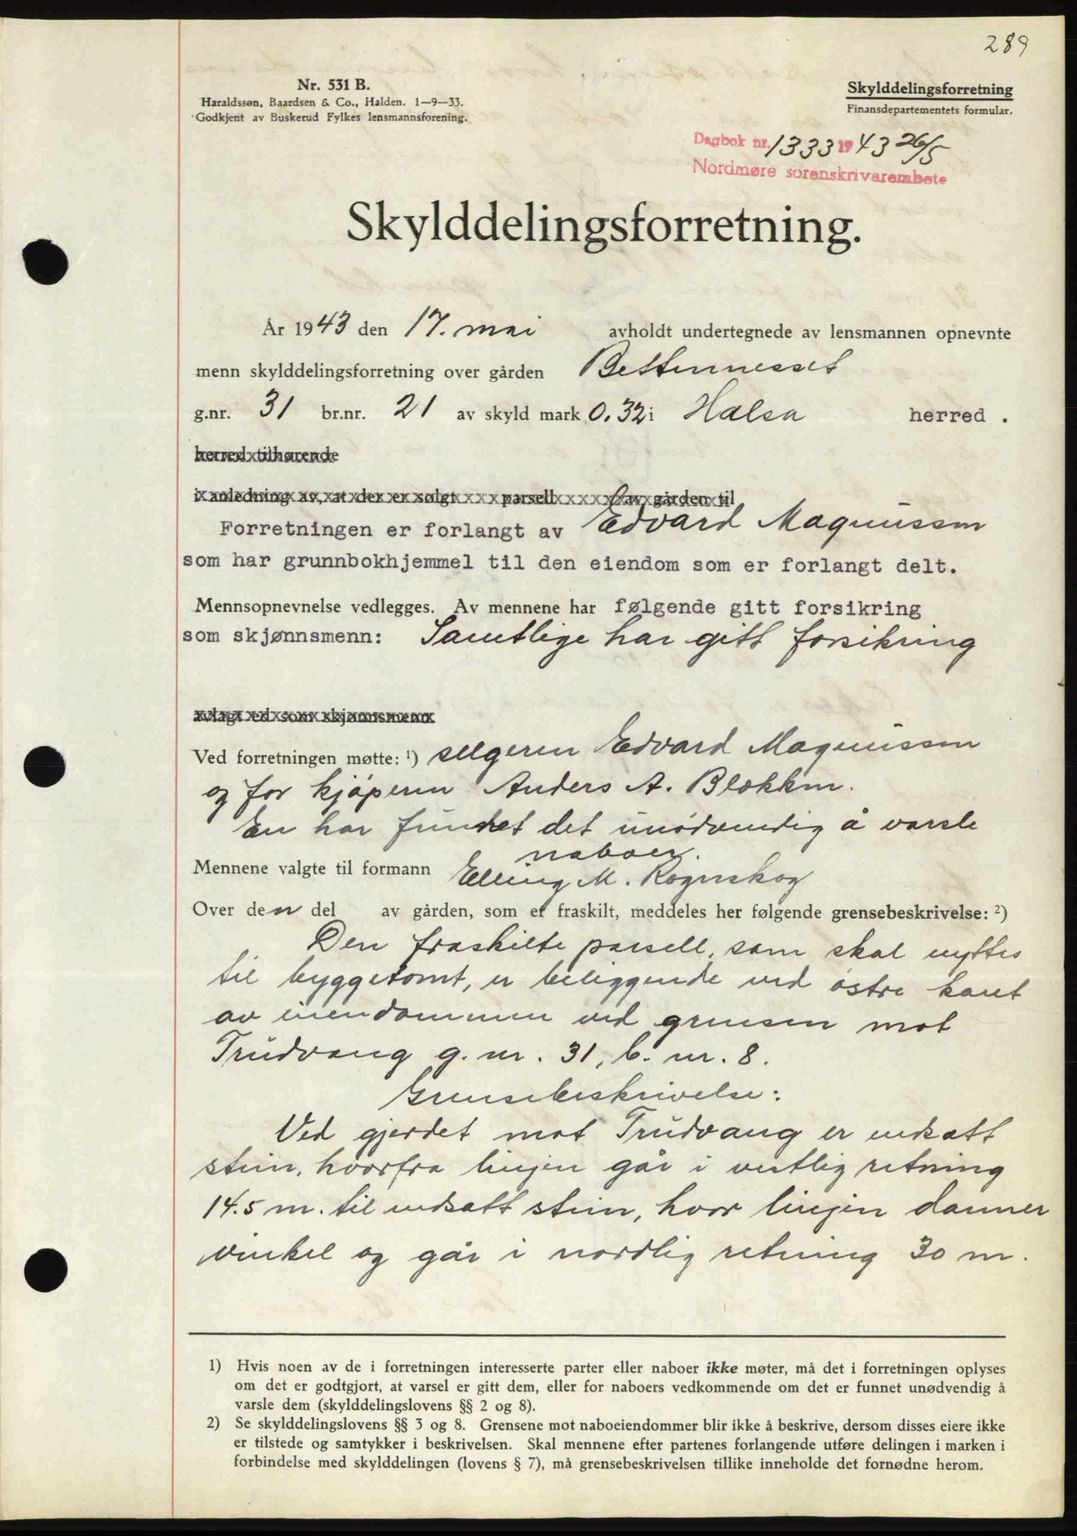 289
Nr. 531 B.
Haraldssøn, Baardsen & Co., Halden. 1—9—33.
Godkjent av Buskerud Fylkes lensmannsforening.
Skylddelingsforretning
Finansdepartementets formular.
Dagbok nr. 1333 1943 26/5
Nordmøre sorenskrivarembete
Skylddelingsforretning.
År 1943 den 17. mai avholdt undertegnede av lensmannen opnevnte
menn skylddelingsforretning over gården Bettennesset
g.nr. 31 br.nr. 21 av skyld mark 0.32 i Halsa herred .
herred tilhørende
i anledning av, at der er solgt parsell av gården til
Forretningen er forlangt av Edvard Magnussen
som har grunnbokhjemmel til den eiendom som er forlangt delt.
Mennsopnevnelse vedlegges. Av mennene har følgende gitt forsikring
som skjønnsmenn: Samtlige har gitt forsikring
avlagt ed som skjønnsmenn
Ved forretningen møtte: ¹) selgeren Edvard Magnussen
og for kjøperen Anders A. Blokken.
En har fundet det unødvendig å varsle
naboer.
Mennene valgte til formann Elling M. Rognskog
Over den del av gården, som er fraskilt, meddeles her følgende grensebeskrivelse: ²)
Den fraskilte parsell, som skal nyttes
til byggetomt, er beliggende ved østre kant
av eiendommen ved grensen mot
Trudvang g. nr. 31, b. nr. 8.
Grensebeskrivelse:
Ved gjerdet mot Trudvang er nedsatt
stein, hvorfra linjen går i vestlig retning
14.5 m. til nedsatt stein, hvor linjen danner
vinkel og går i nordlig retning 30 m.
1) Hvis noen av de i forretningen interesserte parter eller naboer ikke møter, må det i forretningen oplyses
om det er godtgjort, at varsel er gitt dem, eller for naboers vedkommende om det er funnet unødvendig å
varsle dem (skylddelingslovens §§ 2 og 8).
2) Se skylddelingslovens §§ 3 og 8. Grensene mot naboeiendommer blir ikke å beskrive, dersom disses eiere ikke
er tilstede og samtykker i beskrivelsen. Skal mennene efter partenes forlangende utføre delingen i marken i
forbindelse med skylddelingen (lovens § 7), må grensebeskrivelsen tillike inneholde det fornødne herom.